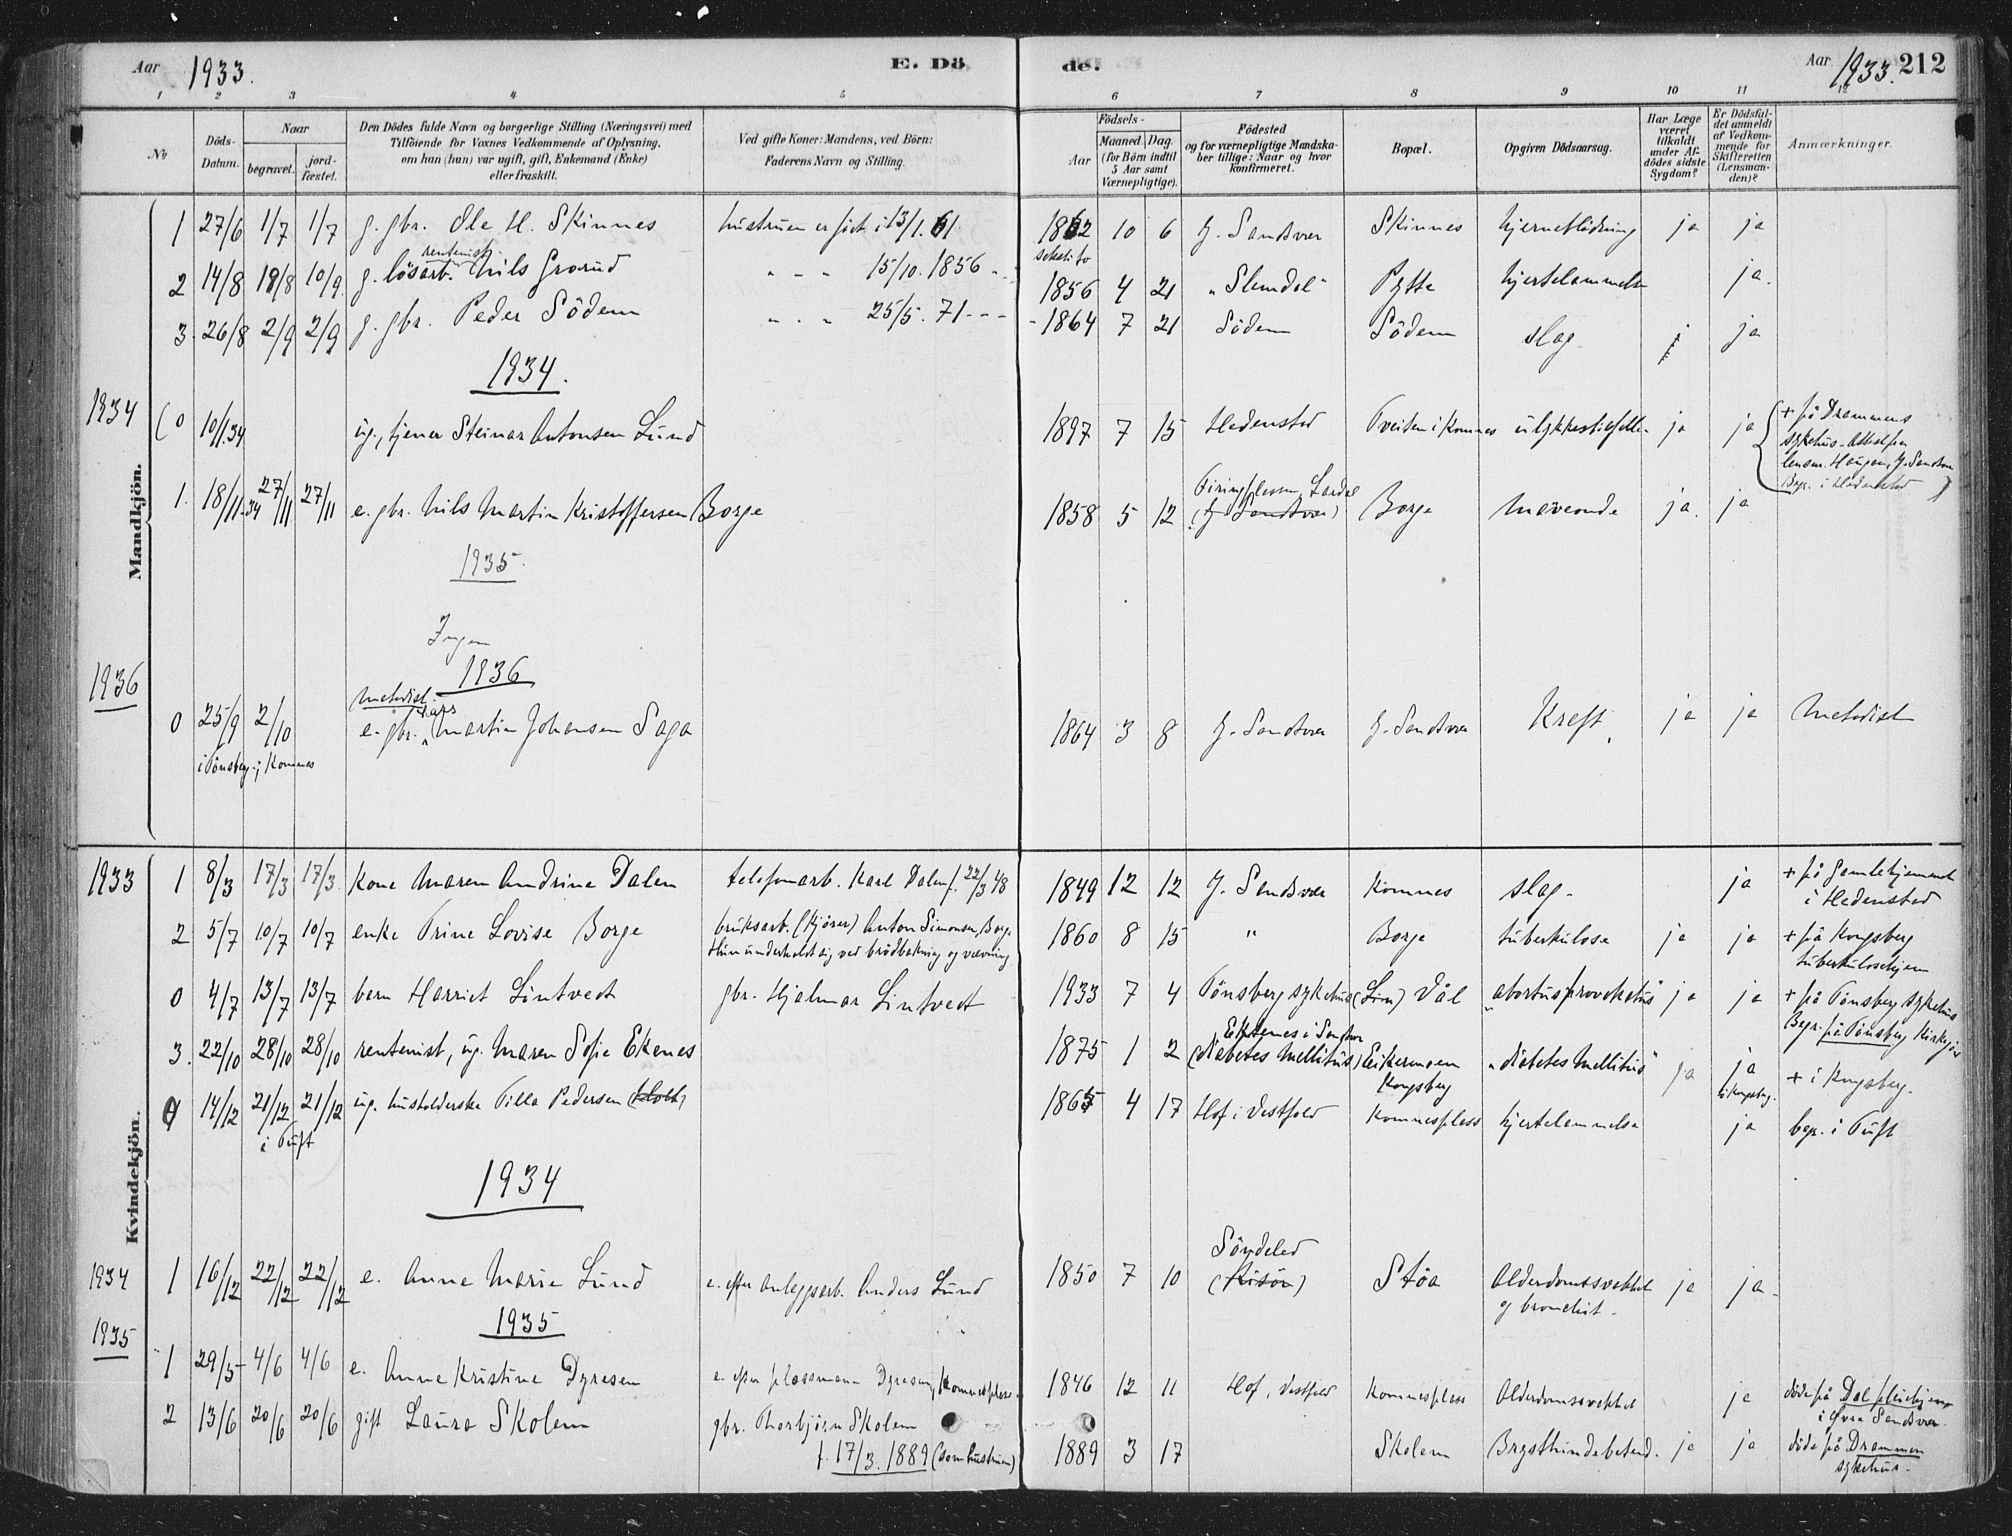 Aar 1933. E. Dö de. Aar 1933. 212
1 2 3 4 5 6 7 8 9 10 11 12
No Döds-Datum. Naar begravet. jordfæstet. Den Dödes fulde Navn og borgerlige Stilling (Næringsvei) med Tilföiende for Voxnes Vedkommende af Oplysning, om han (hun) var ugift, gift, Enkemand (Enke) eller fraskilt. Ved gifte Koner: Mandens, ved Börn: Faderens Navn og Stilling. Födsels- Aar Maaned. Dag. (for Börn indtil 5 Aar samt Værnepligtige). Födested og for værnepligtige Mandskaber tillige: Naar og hvor konfirmeret. Bopæl. Opgiven Dödsaarsag. Har Læge været tilkaldt under Afdödes sidste Sygdom? Er Dödsfaldet anmeldt af Vedkommende for Skifteretten (Lensmanden)? Anmærkninger.
Mandkjön.
1 27/6 1/7 1/7 g. gbr. Ole H. Skinnes hustruen er født i 13/1. 61 1862 10 6 Y. Sandsvær Skinnes hjerneblødning ja ja
2 14/8 18/8 10/9 g. løsarb. rentenist Nils Grorud " " " 15/10. 1856 1856 4 21 "Slemdal" Pytte hjertelammelse ja.
3. 26/8 2/9 2/9 g. gbr. Peder Södem " " " 25/5. 71 - - - 1864 7 21 Södem Södem slag. j ja
1934.
1934 (0 10/1.34 ug., tjener Steinar Antonsen Lund 1897 7 15 Hedensted Tveiten i Komnes ulykkestilfelle ja ja + på Drammens
sykehus. Attest fra
lensm. Haugen, Y. Sandsv.
Begr. i Hedensted
1. 18/11.34 27/11 27/11 e. gbr. Nils Martin Kristoffersen Borge 1858 5 12 Lardal (Y. Sandsvær) Borge mavevonde ja. ja
1935.
Ingen
1936
1936 0 25/9 2/10 metodist e. gbr. Lars Martin Johansen Saga 1864 3 8 Y. Sandsvær Y. Sandsvær Kreft ja ja Metodist
i Tönsberg i Komnes
Kvindekjön.
1933 1 8/3 17/3 17/3. kone Maren Andrine Dalen telefonarb. Karl Dalen f. 22/3 48 1849 12 12 Y. Sandsvær Komnes slag. ja + på Gamlehjemmet
i Hedensted
2 5/7 10/7 10/7 enke Trine Lovise Borge bruksarb. (kjører) Anton Simonsen Borge 1860 8 15 " Borge tuberkulose ja ja + på Kongsberg
Hun underholdt sig ved brødbakning og vævning tuberkulosehjem
0 4/7 13/7 13/7 barn Harriet Lintvedt gbr. Hjalmar Lintvedt 1933 7 4 Tönsberg sykehus (Lin) Vål "abortus provokatus" ja ja + på Tönsberg sykehus
Begr. på Tönsberg Kirkegår
3. 22/10 28/10 28/10 rentenist, ug. Maren Sofie Ekenes 1875 1 2 Ekenes i Sandsvær (diabetes mellitus) Kongsberg "diabetes mellitus" ja ja til Kongsberg. + i Kongsberg.
4 14/12 21/12 21/12 ug. husholderske Tilla Pedersen (Holt) 1865 4 17 Hof i Vestfold Komnesplass hjertelammelse ja begr. i Tuft
i Tuft
1934
1934 1 16/12 22/12 22/12 e. Anne Marie Lund e. efter anleggsarb. Anders Lund 1850 7 10 Söndeled (Risør) Støa Alderdomssvakhet og bronchit. ja ja
1935
1935 1 29/5 4/6 4/6 e. Anne Kristine Dyresen e. efter plassmann Dyresen, Komnesplass 1846 12 11 Hof, Vestfold Komnesplass Alderdomssvakhet ja døde på Dal pleiehjem
i Øvre Sandsvær.
2 13/6 20/6 20/6 gift Laura Skolem gbr. Thorbjørn Skolem
f. 17/3. 1889 (som hustruen) 1889 3 17 Skolem Brysthindebetend. ja ja døde på Drammen
sykehus.